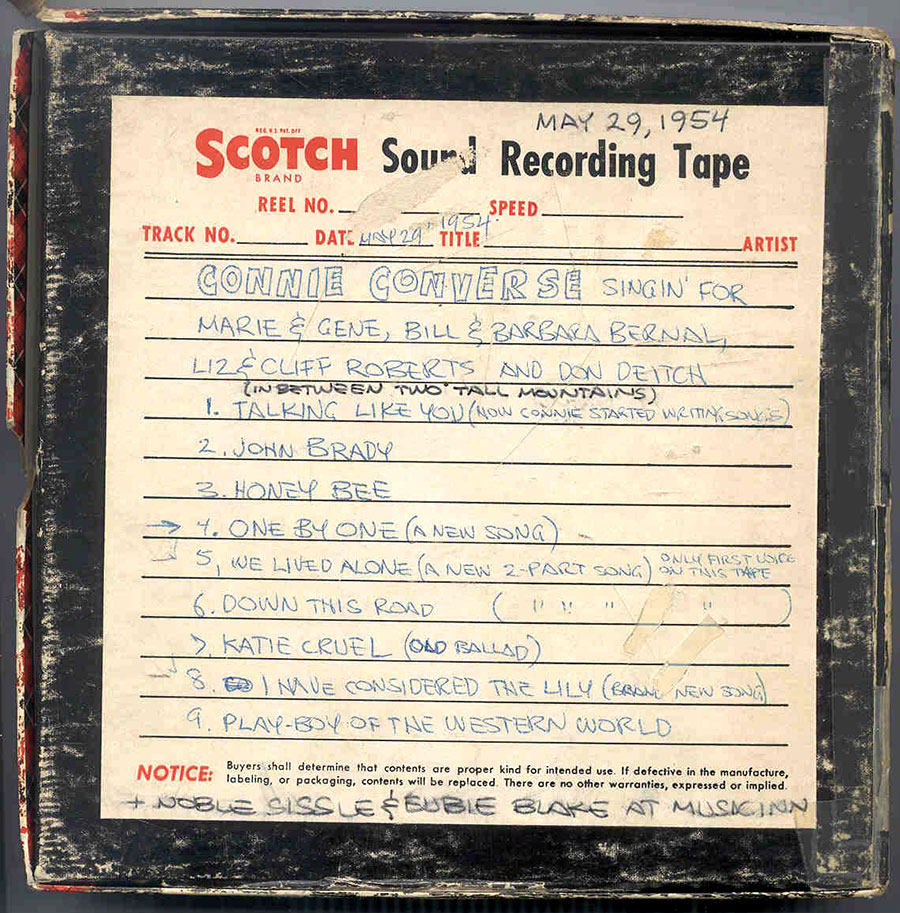 MAY 29, 1954
REG. U.S. PAT. OFF.
SCOTCH Sound Recording Tape
BRAND
REEL NO. SPEED
TRACK NO. DATE MAY 29TH 1954 TITLE ARTIST
CONNIE CONVERSE SINGIN' FOR
MARIE & GENE, BILL & BARBARA BERNAL,
LIZ & CLIFF ROBERTS AND DON DEITCH
(IN BETWEEN TWO TALL MOUNTAINS)
1. TALKING LIKE YOU (HOW CONNIE STARTED WRITING SONGS)
2. JOHN BRADY
3. HONEY BEE
→ 4. ONE BY ONE (A NEW SONG)
5, WE LIVED ALONE (A NEW 2-PART SONG) ONLY FIRST VOICE
ON THIS TAPE
6. DOWN THIS ROAD ( " " " " )
7. KATIE CRUEL (OLD BALLAD)
8. I HAVE CONSIDERED THE LILY (BRAND NEW SONG)
9. PLAY-BOY OF THE WESTERN WORLD
NOTICE: Buyers shall determine that contents are proper kind for intended use. If defective in the manufacture,
labeling, or packaging, contents will be replaced. There are no other warranties, expressed or implied.
+ NOBLE SISSLE & EUBIE BLAKE AT MUSIC INN